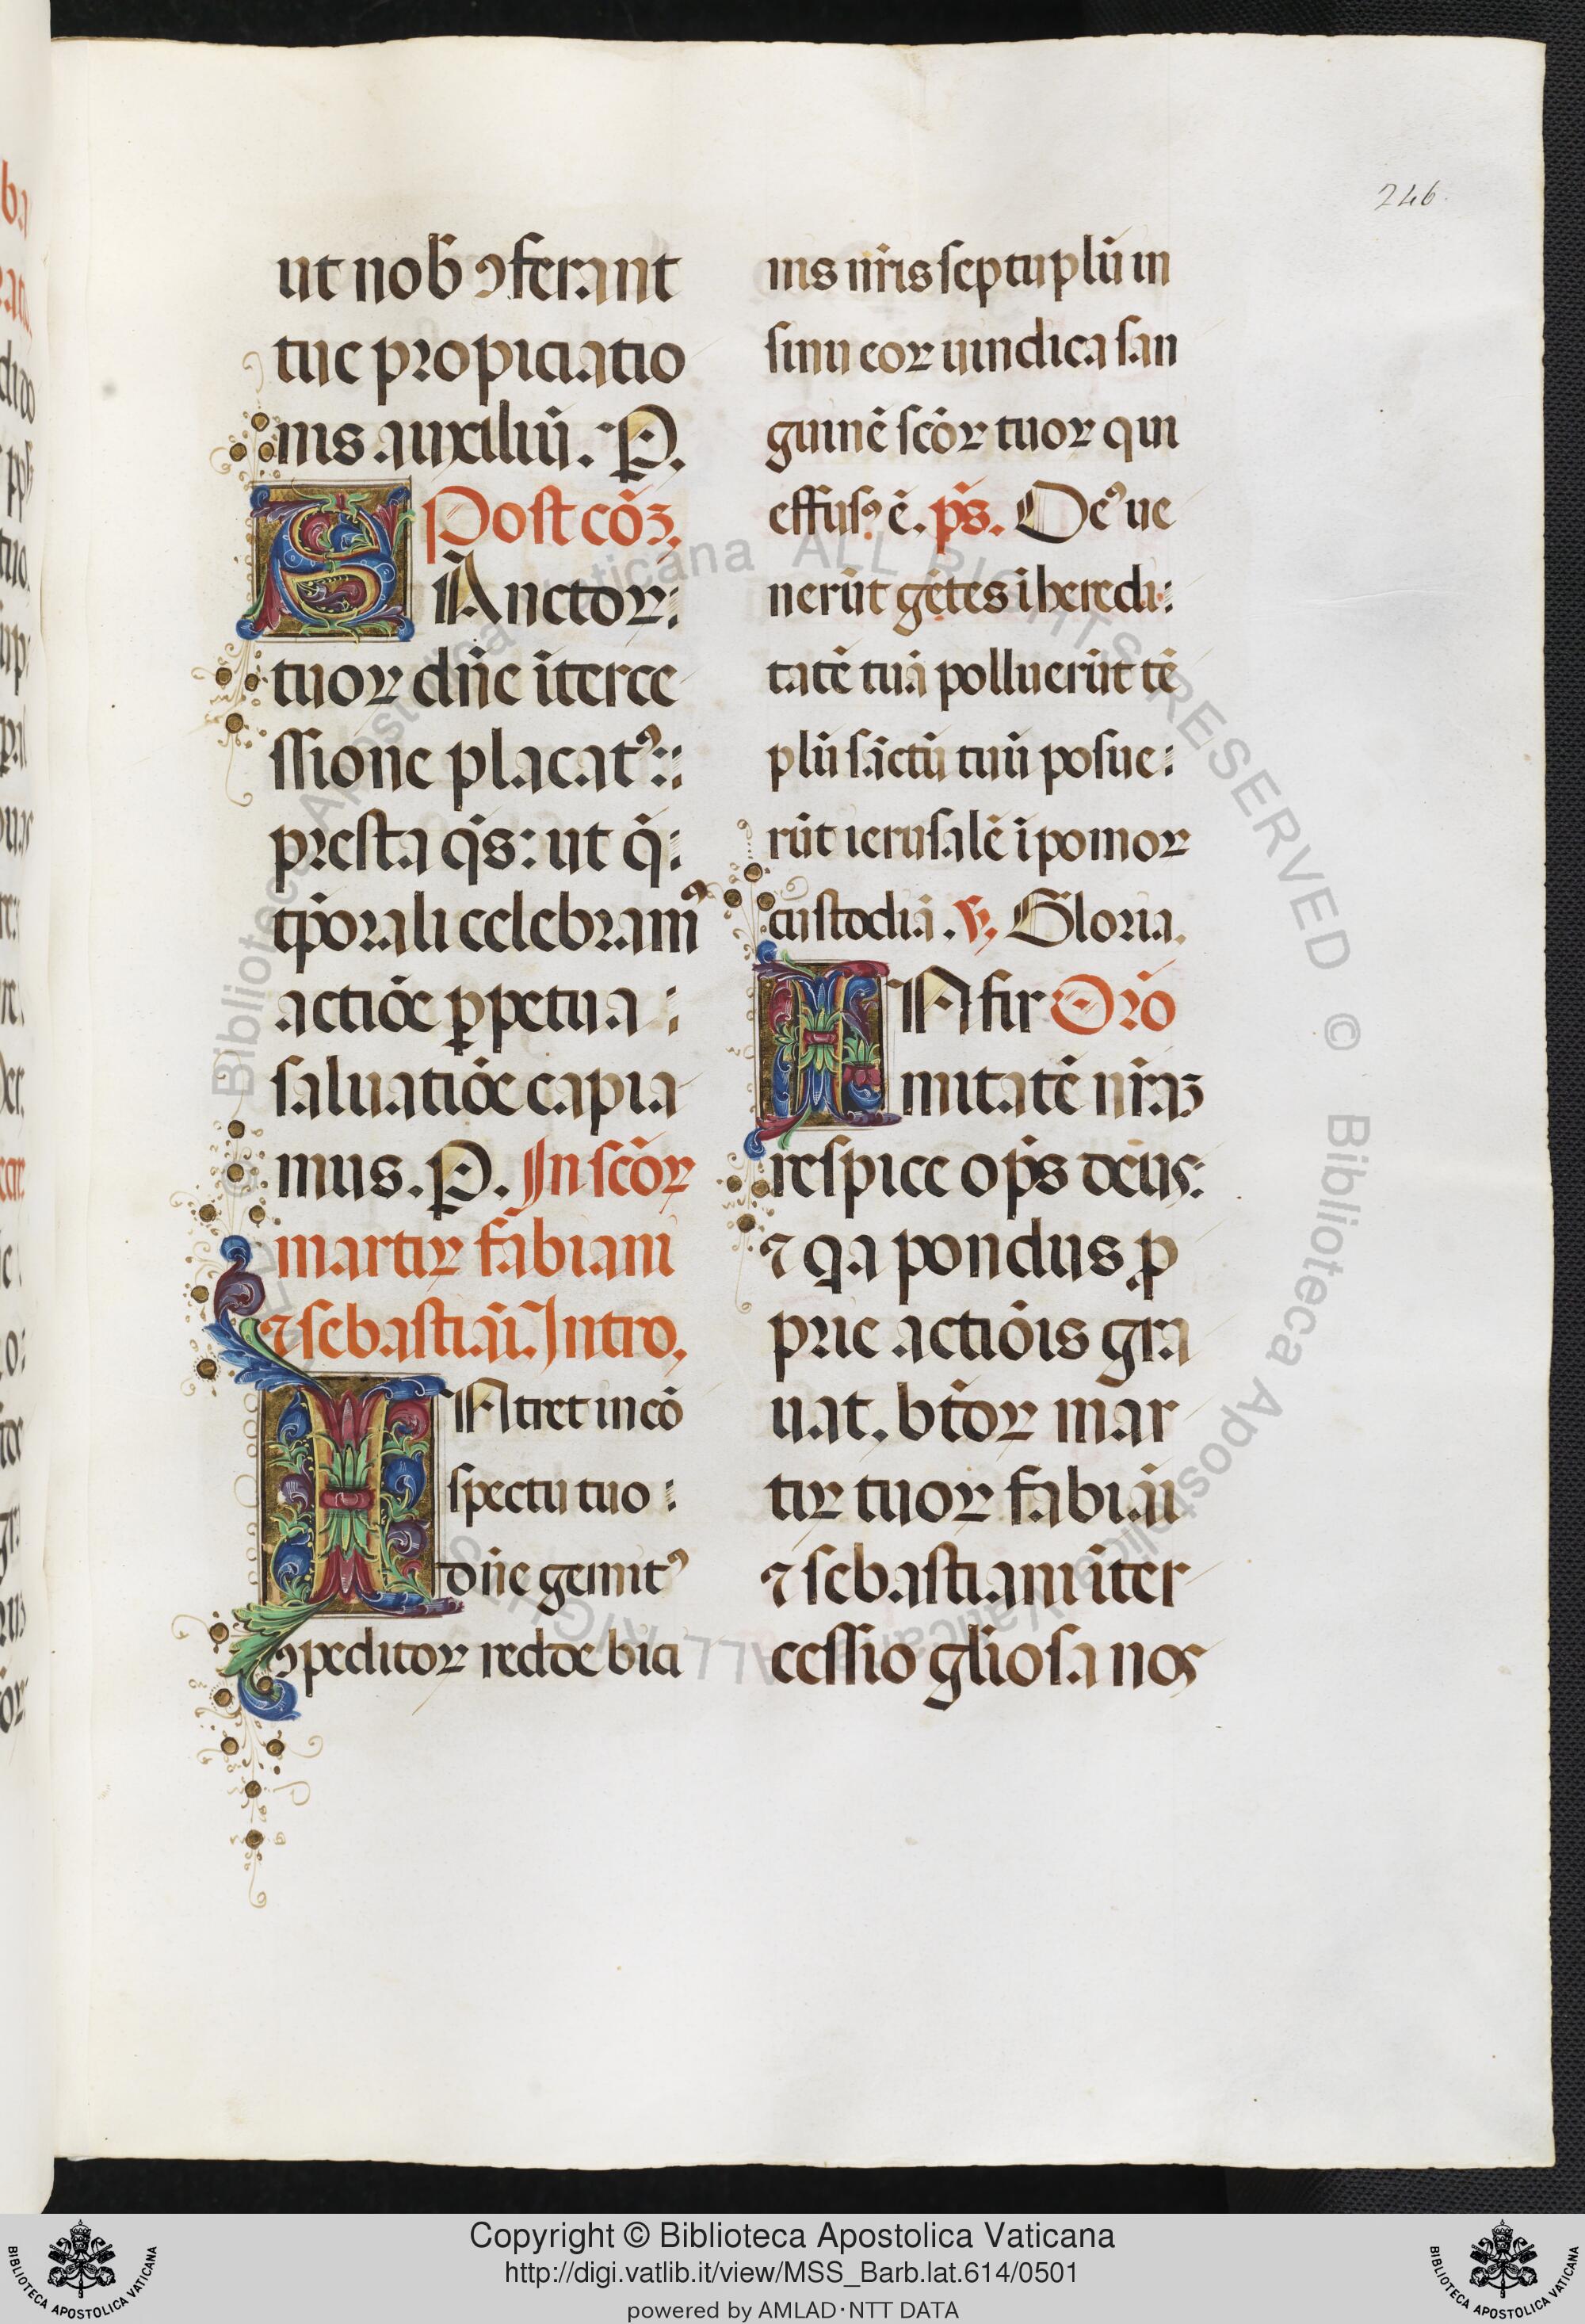 246.
ut nob̄ ꝯferant
tue propiciatio
nis auxiliū. P.
Post cōꝫ.
SAnctoꝝ
tuoꝝ dn̄e īterce
ssione placatꝰ
presta qs̄: ut q̄
tp̄orali celebramꝰ
actiōe ꝑpetua
saluatiōe capia
mus. P. In scōꝝ
martiꝝ fabiani
⁊ sebastiāi. Intro.
INtret in cō
spectu tuo
dn̄e gemitꝰ
ꝯpeditoꝝ redde vici
nis nr̄is septuplū in
sinu eoꝝ uindica san
guinē scōꝝ tuoꝝ qui
effusꝰ ē. ps̄. Deꝰ ue
nerūt gētes ī heredi
tatē tuā polluerūt tē
plū sāctū tuū posue
rūt ierusalē ī pomoꝝ
custodiā. ℣. Gloria.
INfir Orō
mitatē nr̄aꝫ
respice op̄s deus
⁊ qa pondus ꝓ
prie actiōis gra
uat. btōꝝ mar
tiꝝ tuoꝝ fabiāi
⁊ sebastiani īter
cessio gl̄iosa nos
Copyright © Biblioteca Apostolica Vaticana
http://digi.vatlib.it/view/MSS_Barb.lat.614/0501
powered by AMLAD·NTT DATA
BIBLIOTECA APOSTOLICA VATICANA
BIBLIOTECA APOSTOLICA VATICANA
© Biblioteca Apostolica Vaticana ALL RIGHTS RESERVED © Biblioteca Apostolica Vaticana ALL RIGHTS RESERVED